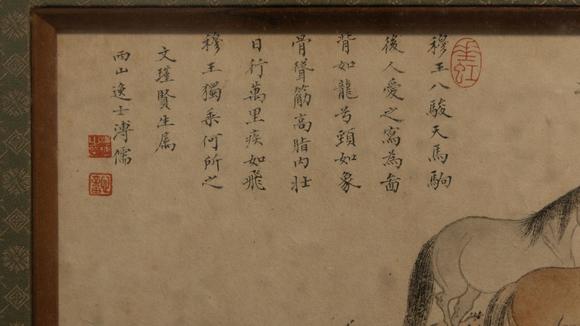 穆王八駿天馬駒
後人愛之寫為啚
背如龍兮頸如象
骨聳筋高脂肉壯
日行萬里疾如飛
穆王獨乘何所之
文瑾賢生属
西山逸士溥儒